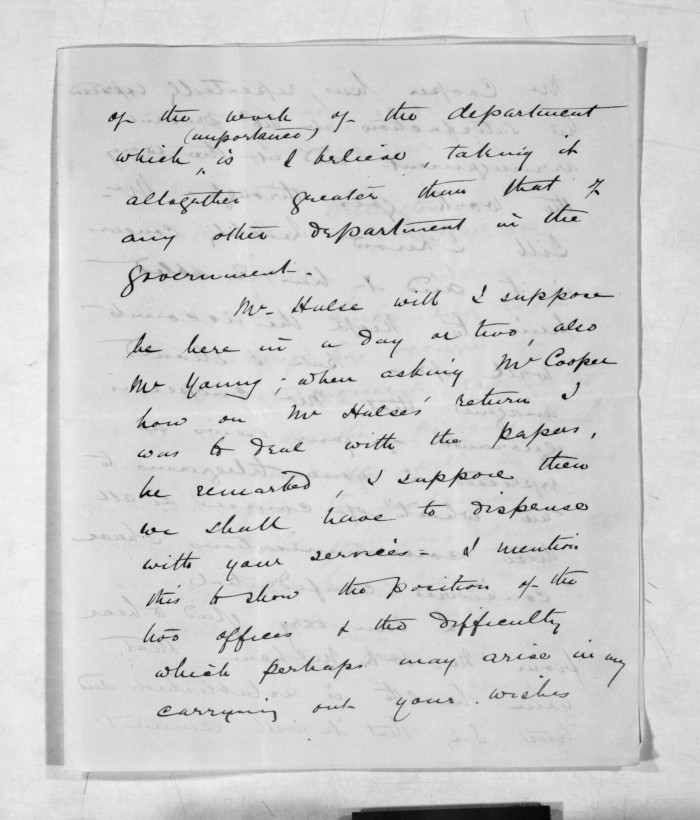 of the work of the department
(importance)
which, is I believe, taking it
altogether greater than that of
any other department in the
government.
Mr Hulse will I suppose
be here in a day or two, also
Mr Young; when asking Mr Cooper
how on Mr Hulses' return I
was to deal with the papers,
he remarked, I suppose then
we shall have to dispense
with your services - I mention
this to show the position of the
two offices & the difficulty
which perhaps may arise in my
carrying out your wishes